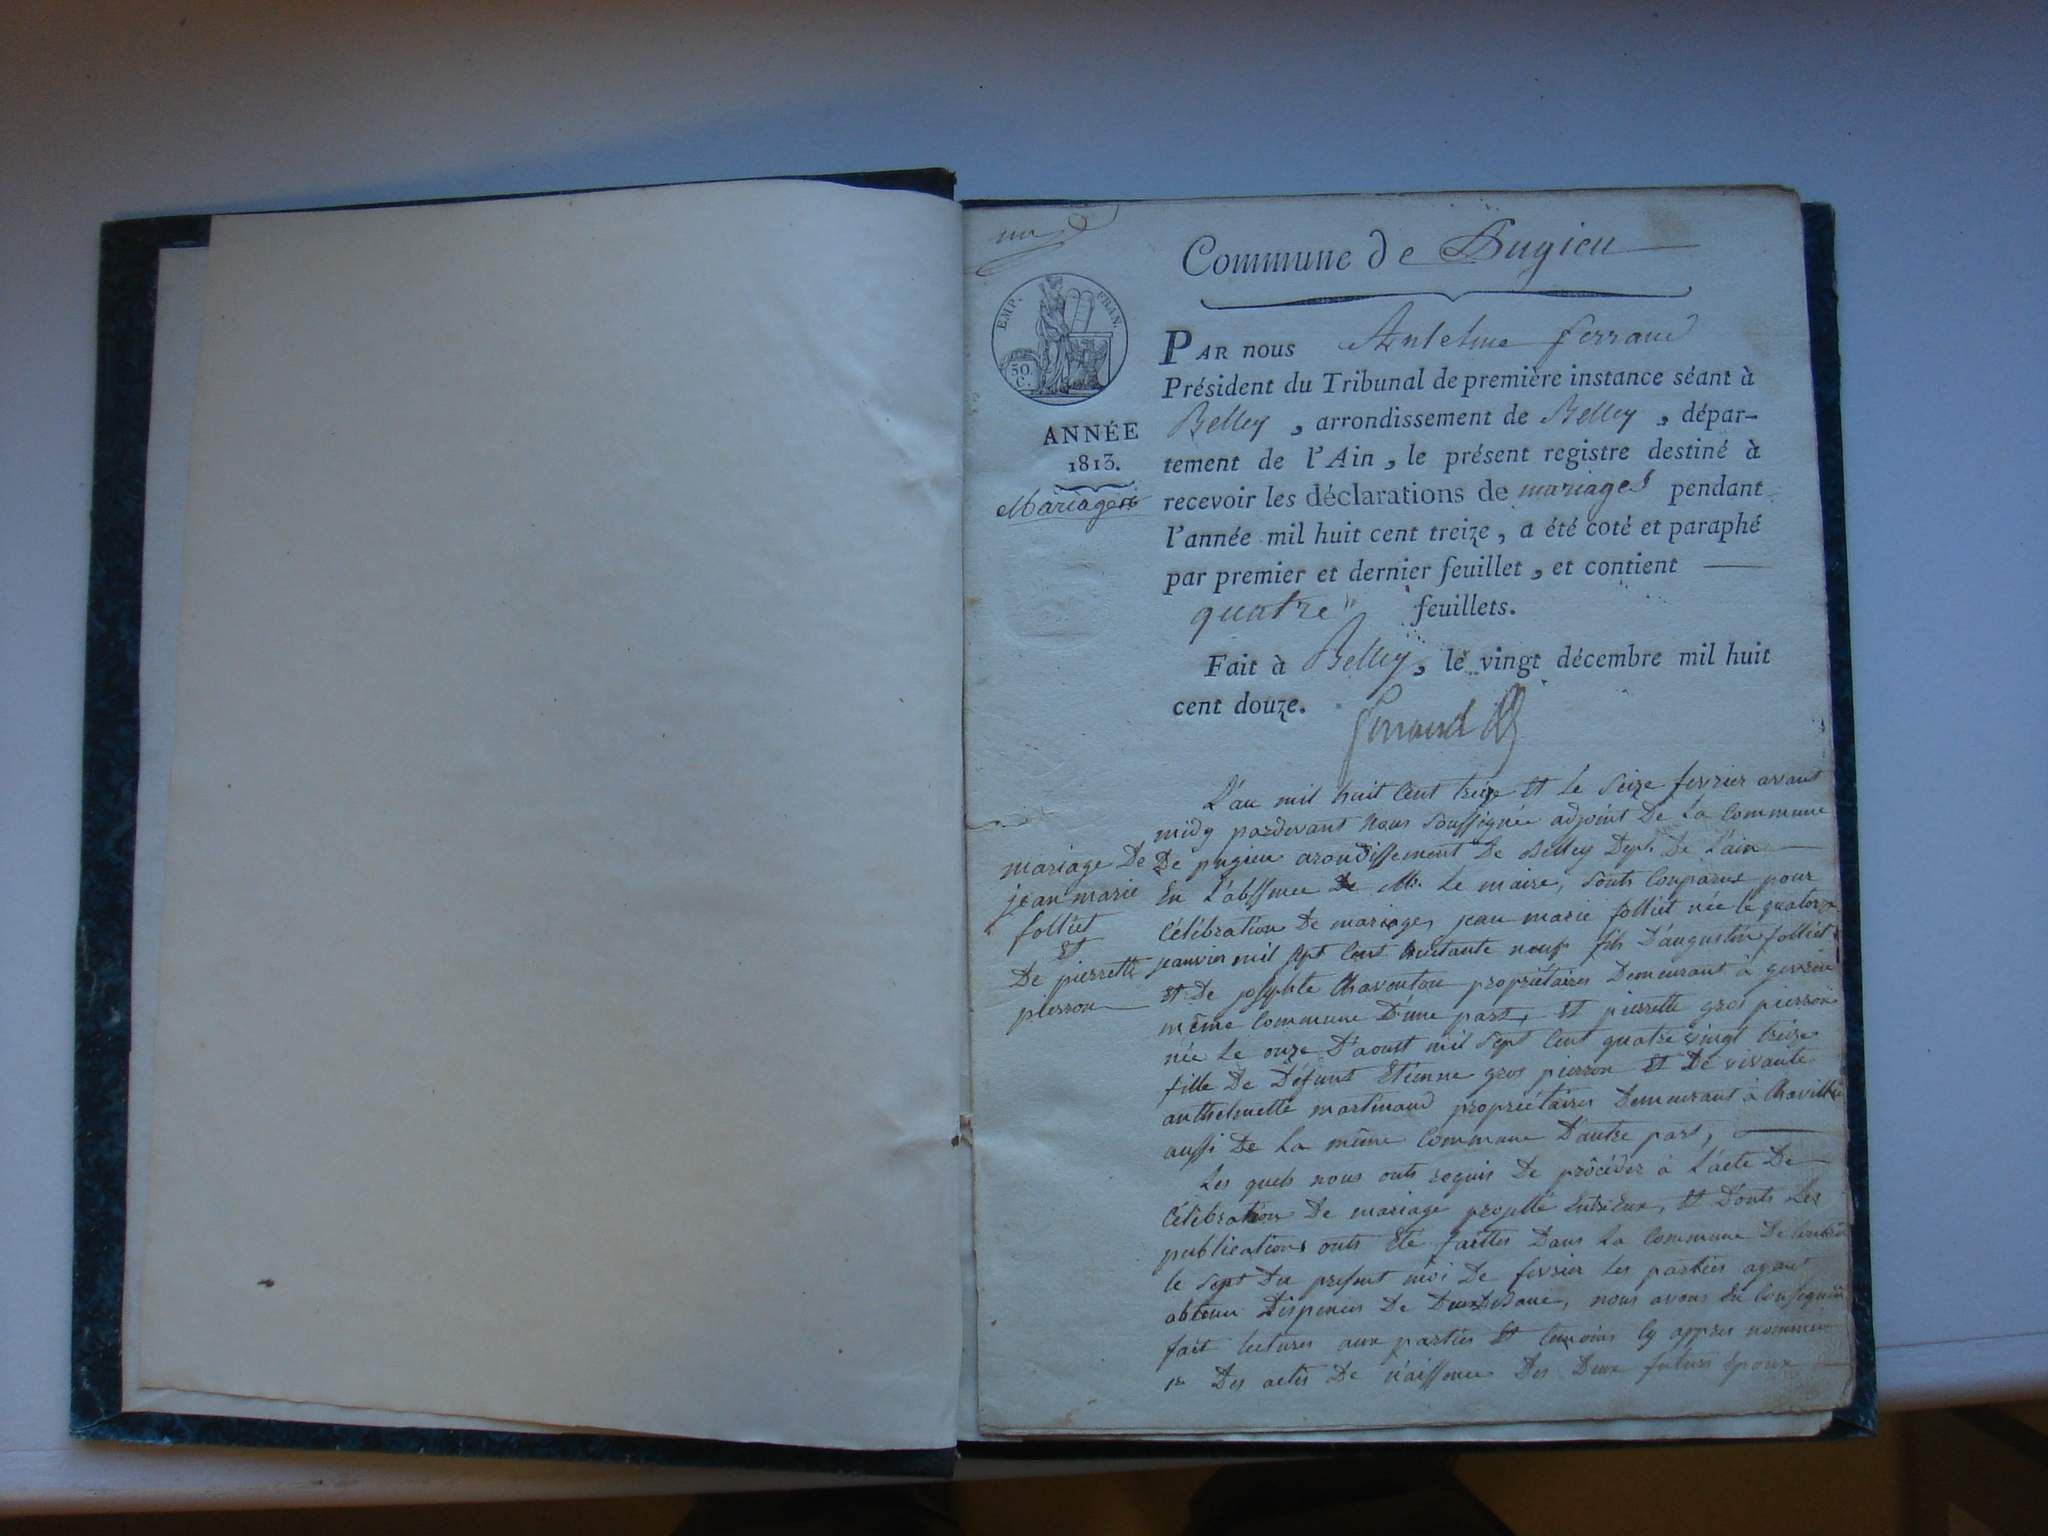 un
Commune de Pugieu
EMP. FRAN.
50. C.
ANNÉE
1813.
Mariages
PAR nous Antelme ferrand
Président du Tribunal de première instance séant à
Belley, arrondissement de Belley, dépar-
tement de l'Ain, le présent registre destiné à
recevoir les déclarations de mariages pendant
l'année mil huit cent treize, a été coté et paraphé
par premier et dernier feuillet, et contient
quatre feuillets.
Fait à Belley, le vingt décembre mil huit
cent douze.
ferrand
mariage de
jean marie
folliet
Et
De pierrette
pierron
L'an mil huit Cent treize Et le Seize fevrier avant
midy pardevant Nous Soussignée adjoint De La Commune
De pugieu arondissement De Belley Dept. De L'ain
En L'abssence De Mr. Le maire, Sonts Comparus pour
Célébration De mariage, jean marie folliet née le quatorze
jeanvier mil sept Cent huitante neuf fils D'augustin folliet
Et De josephte Chaventon propriétaires Demeurant à
même Commune D'une part, Et pierrette gros pierron
née Le onze D'aoust mil Sept Cent quatre vingt treize
fille De Défunt Etienne gros pierron Et De vivante
anthelmette martinand propriétaires Demeurant à
aussi De La même Commune D'autre part,
Les quels nous onts requis De procéder à L'acte De
Célébration De mariage projetté Entr'Eux, Et D'onts Les
publications onts Eté faittes Dans La Commune De
le Sept Du present moi De fevrier Les parties ayant
obtenu Dispences De nous avons En Consequence
fait lectures aux parties Et temoins Cy appres nommes
1º Des actes De naissence Des Deux futurs Epoux